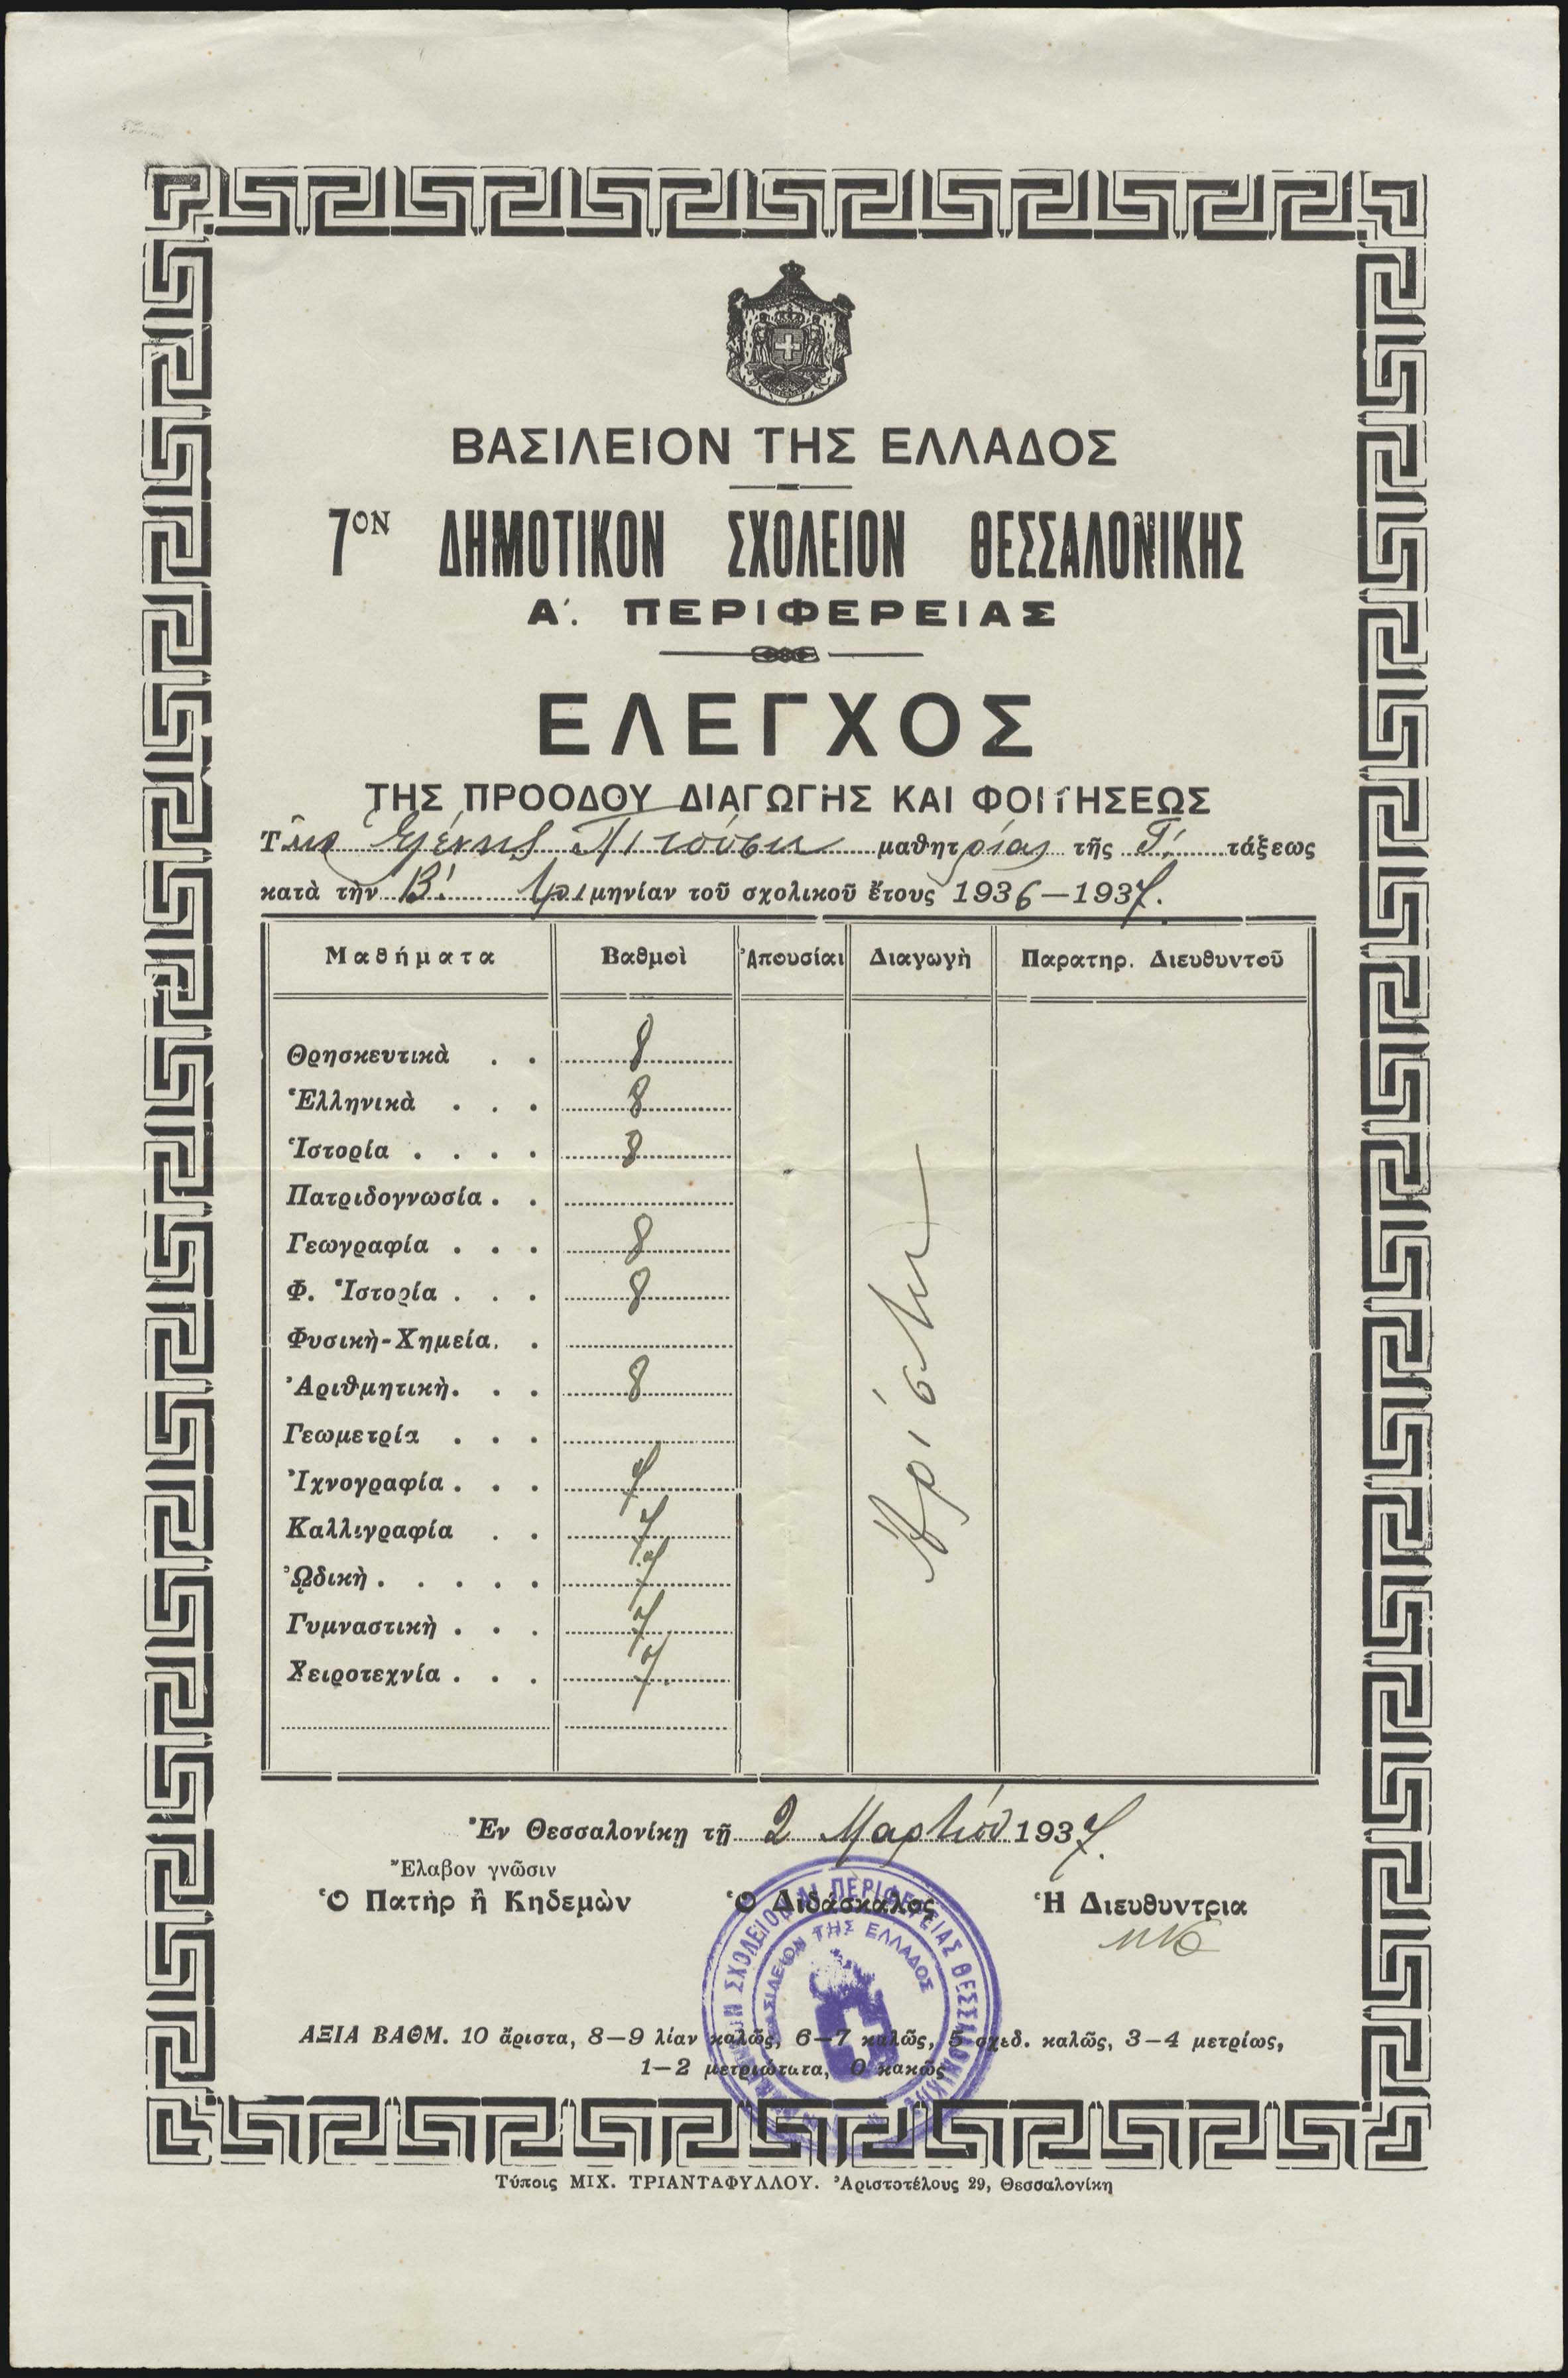 ΒΑΣΙΛΕΙΟΝ ΤΗΣ ΕΛΛΑΔΟΣ
7ΟΝ ΔΗΜΟΤΙΚΟΝ ΣΧΟΛΕΙΟΝ ΘΕΣΣΑΛΟΝΙΚΗΣ
Α΄. ΠΕΡΙΦΕΡΕΙΑΣ
ΕΛΕΓΧΟΣ
ΤΗΣ ΠΡΟΟΔΟΥ ΔΙΑΓΩΓΗΣ ΚΑΙ ΦΟΙΤΗΣΕΩΣ
Τῆς Ἑλένης μαθητρίας τῆς Γ΄. τάξεως
κατὰ τὴν Β΄. τριμηνίαν τοῦ σχολικοῦ ἔτους 1936—1937.
Μαθήματα Βαθμοὶ Ἀπουσίαι Διαγωγὴ Παρατηρ. Διευθυντοῦ
Θρησκευτικὰ . . 8
Ἑλληνικὰ . . . 8
Ἱστορία . . . . 8
Πατριδογνωσία . .
Γεωγραφία . . . 8
Φ. Ἱστορία . . . 8
Φυσικὴ-Χημεία. .
Ἀριθμητικὴ. . . 8
Γεωμετρία . . .
Ἰχνογραφία . . . 7
Καλλιγραφία . . 7
ᾨδικὴ . . . . . 7
Γυμναστικὴ . . . 7
Χειροτεχνία . . . 7
Ἀρίστη
Ἐν Θεσσαλονίκῃ τῇ 2 Μαρτίου 1937.
Ἔλαβον γνῶσιν
Ὁ Πατὴρ ἢ Κηδεμὼν Ὁ Διδάσκαλος Ἡ Διευθυντρια
ΣΧΟΛΕΙΟΝ Α΄ ΠΕΡΙΦΕΡΕΙΑΣ ΘΕΣΣΑΛΟΝΙΚΗΣ
ΒΑΣΙΛΕΙΟΝ ΤΗΣ ΕΛΛΑΔΟΣ
ΑΞΙΑ ΒΑΘΜ. 10 ἄριστα, 8—9 λίαν καλῶς, 6—7 καλῶς, 5 σχεδ. καλῶς, 3—4 μετρίως,
1—2 μετριώτατα, 0 κακῶς
Τύποις ΜΙΧ. ΤΡΙΑΝΤΑΦΥΛΛΟΥ. Ἀριστοτέλους 29, Θεσσαλονίκη